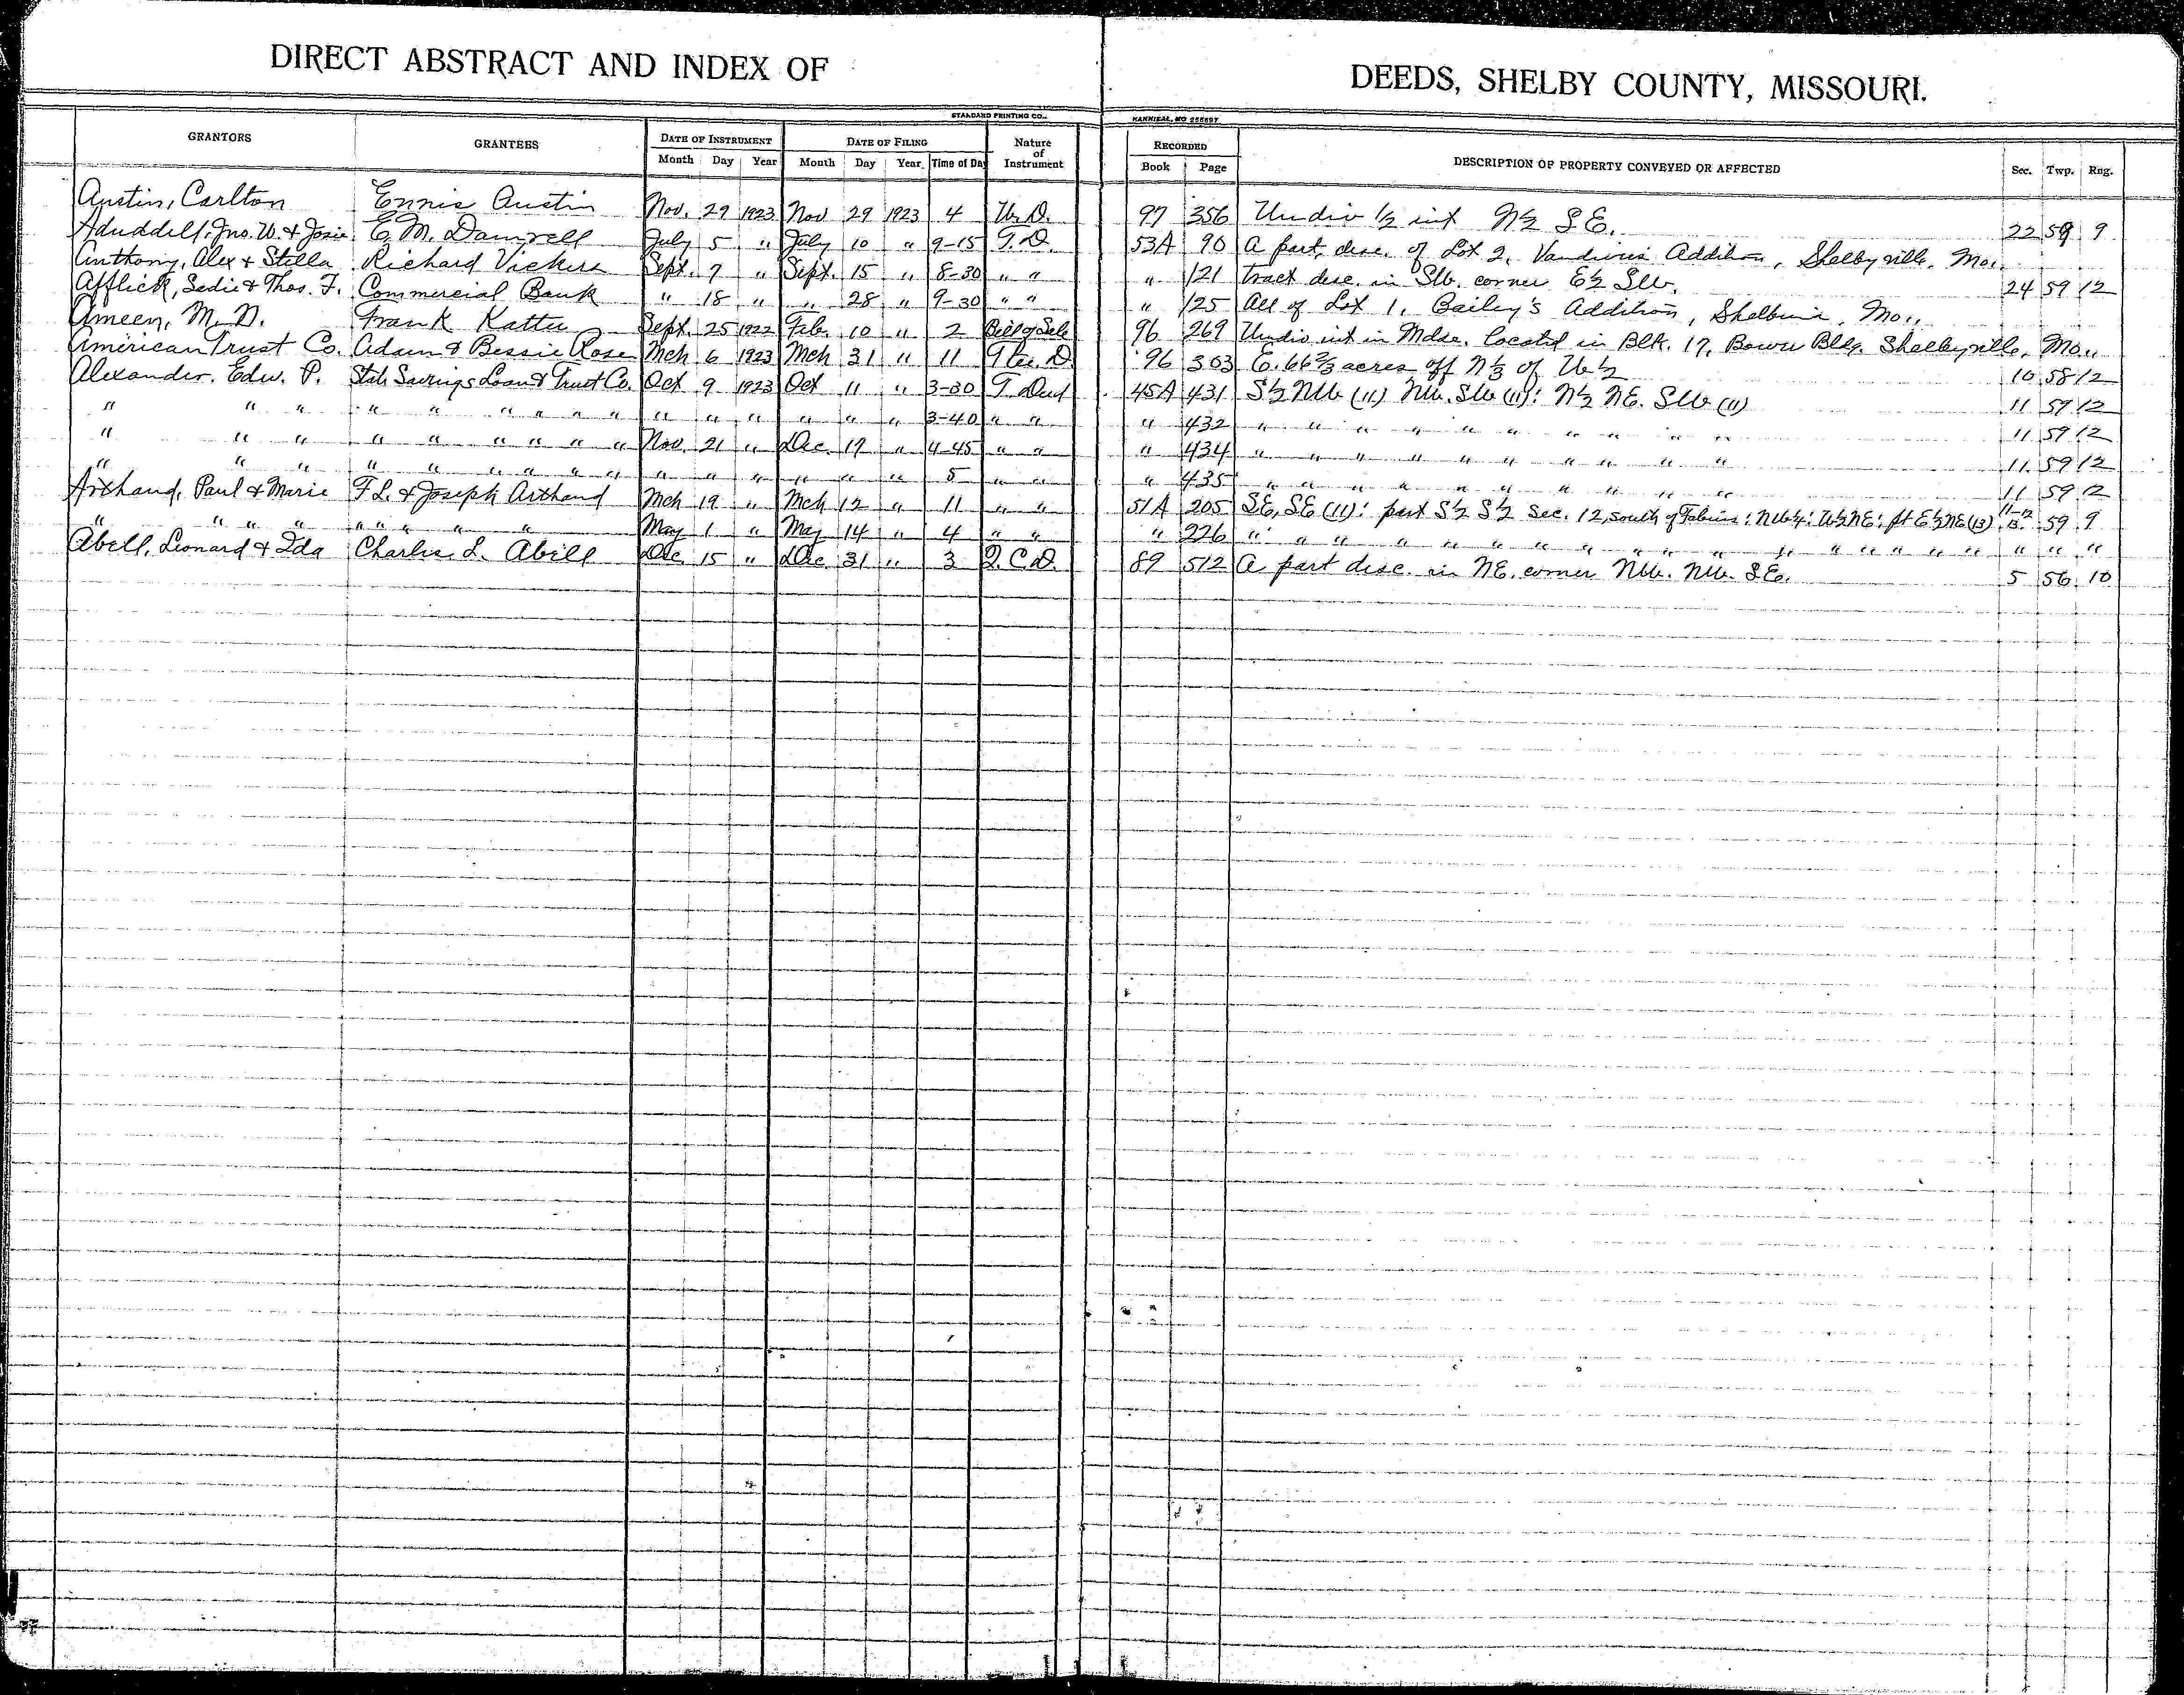 DIRECT ABSTRACT AND INDEX OF DEEDS, SHELBY COUNTY, MISSOURI.
STANDARD PRINTING CO., HANNIBAL, MO
GRANTORS GRANTEES DATE OF INSTRUMENT DATE OF FILING Nature of Instrument RECORDED DESCRIPTION OF PROPERTY CONVEYED OR AFFECTED Sec. Twp. Rng.
Month Day Year Month Day Year Time of Day Book Page
Austin, Carlton Ennis Austin Nov. 29 1923 Nov 29 1923 4 W.D. 97 356 Undiv 1/2 int N½ SE. 22 59 9
Aduddell, Jno. W. & Josie E. M. Damrell July 5 " July 10 " 9-15 T.D. 53A 90 A part, desc. of Lot 2, Addition, Shelbyville, Mo.
Anthony, Alex & Stella Richard Vickers Sept. 7 " Sept. 15 " 8-30 " " " 121 Tract desc. in SW. corner E½ SW. 24 59 12
Afflick, Sadie & Thos. F. Commercial Bank " 18 " " 28 " 9-30 " " " 125 All of Lot 1, Bailey's Addition, Shelbina, Mo.,
Ameen, M. D. Frank Sept. 25 1922 Feb. 10 " 2 Bill of Sale 96 269 Undiv int in Mdse. located in Blk. 17, Bldg. Shelbyville, Mo.,
American Trust Co. Adam & Bessie Rose Mch 6 1923 Mch 31 " 11 D. 96 303 E. 66⅔ acres off N⅓ of W½ 10 58 12
Alexander. Edw. P. State Savings Loan & Trust Co. Oct 9 1923 Oct 11 " 3-30 T. Deed 45A 431 S½ NW (11) NW. SW (11): N½ NE. SW (11) 11 59 12
" " " " " " " " " " " " " " " 3-40 " " " 432 " " " " " " " " " 11 59 12
" " " " " " " " " Nov. 21 " Dec. 17 " 4-45 " " " 434 " " " " " " " " " 11 59 12
" " " " " " " " " " " " " " " 5 " " " 435 " " " " " " " " " 11 59 12
Arthaud, Paul & Marie F. L. & Joseph Arthaud Mch 19 " Mch 12 " 11 " " 51A 205 SE, SE (11): part S½ S½ Sec. 12, south of Fabius: NW¼: W½ NE: pt E½ NE (13) 11-12 13. 59 9
" " " " " " " " " May 1 " May 14 " 4 " " " 226 " " " " " " " " " " " " " " " " " " " "
Abell, Leonard & Ida Charles L. Abell Dec. 15 " Dec. 31 " 3 Q.C.D. 89 512 A part desc. in NE. corner NW. NW. SE. 5 56 10